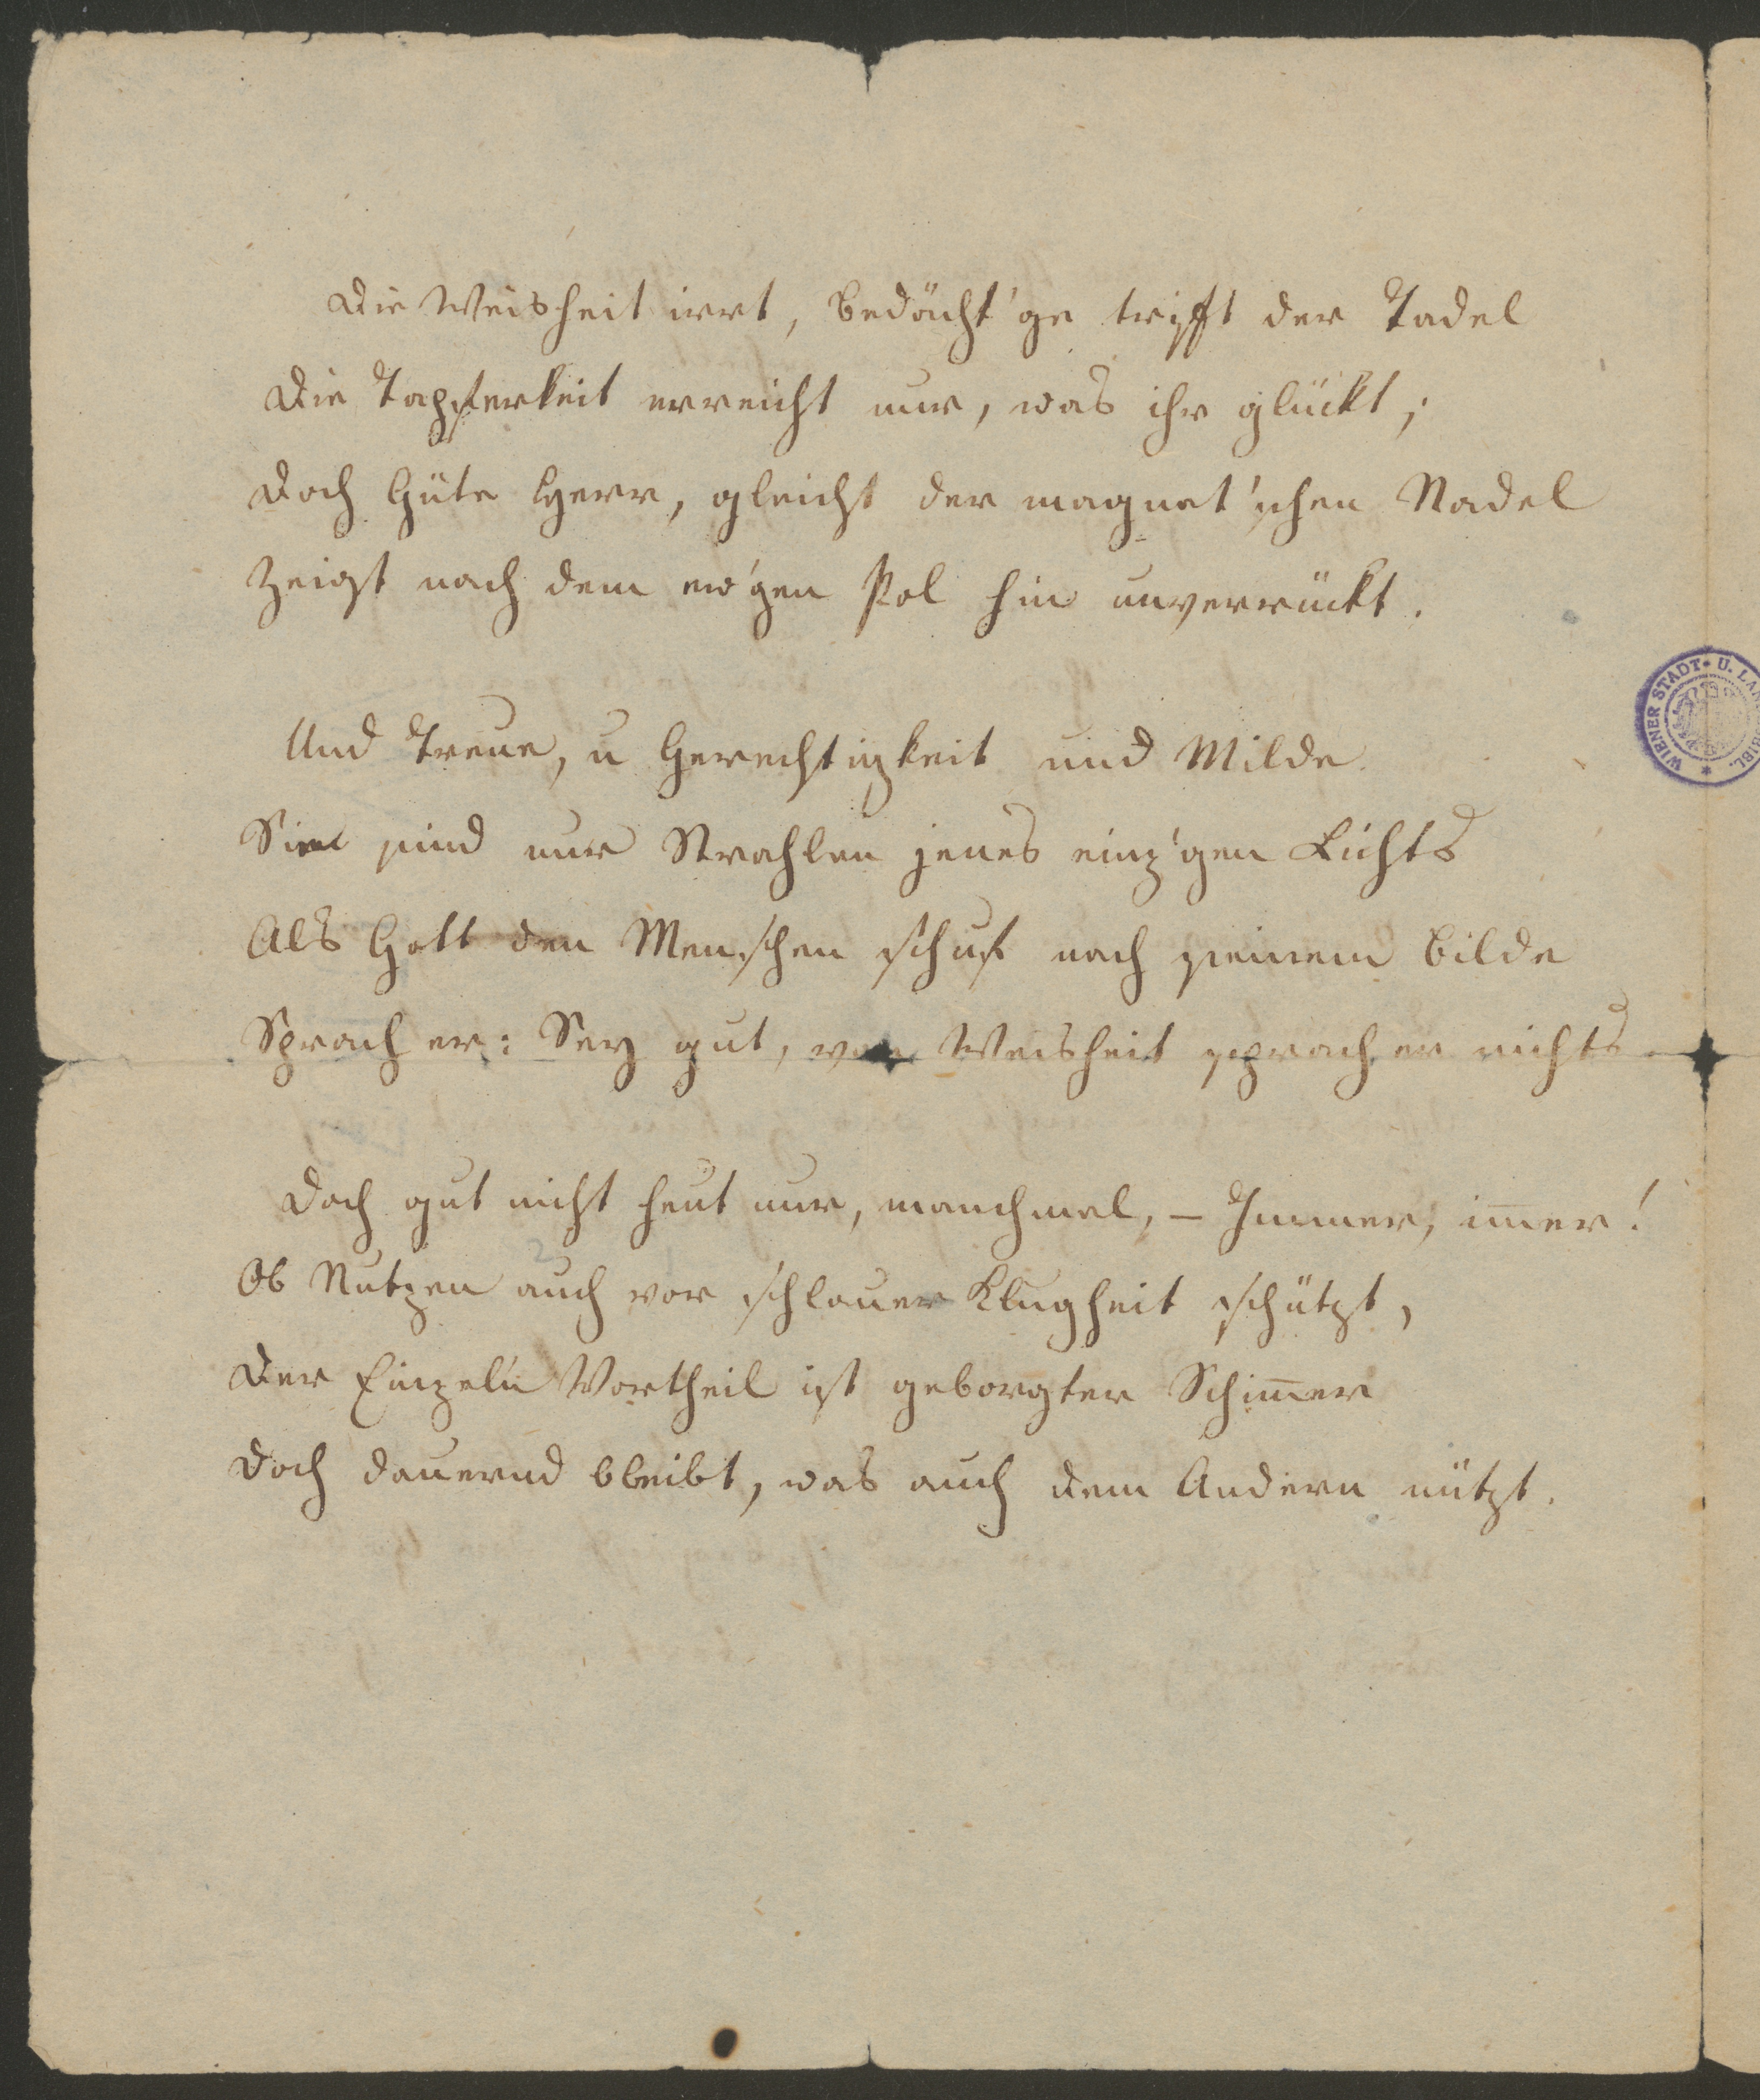 Die Weisheit irrt, Bedächt'ge trifft der Tadel
Die Tapferkeit erreicht nur, was ihr glückt;
Doch Güte Herr, gleicht der magnet'schen Nadel
Zeigt nach dem ew'gen Pol hin unverrückt.
Und Treue, u Gerechtigkeit und Milde
Sie sind nur Strahlen jenes einz'gen Lichts
Als Gott den Menschen schuf nach seinem Bilde
Sprach er: Sey gut, von Weisheit sprach er nichts.
Doch gut nicht heut nur, manchmal, – Immer, im̅er!
Ob Nutzen auch vor schlauer Klugheit schützt,
Der Einzeln Vortheil ist geborgter Schim̅er
Doch dauernd bleibt, was auch dem Andern nützt.
WIENER STADT- U. LA
BIBL.